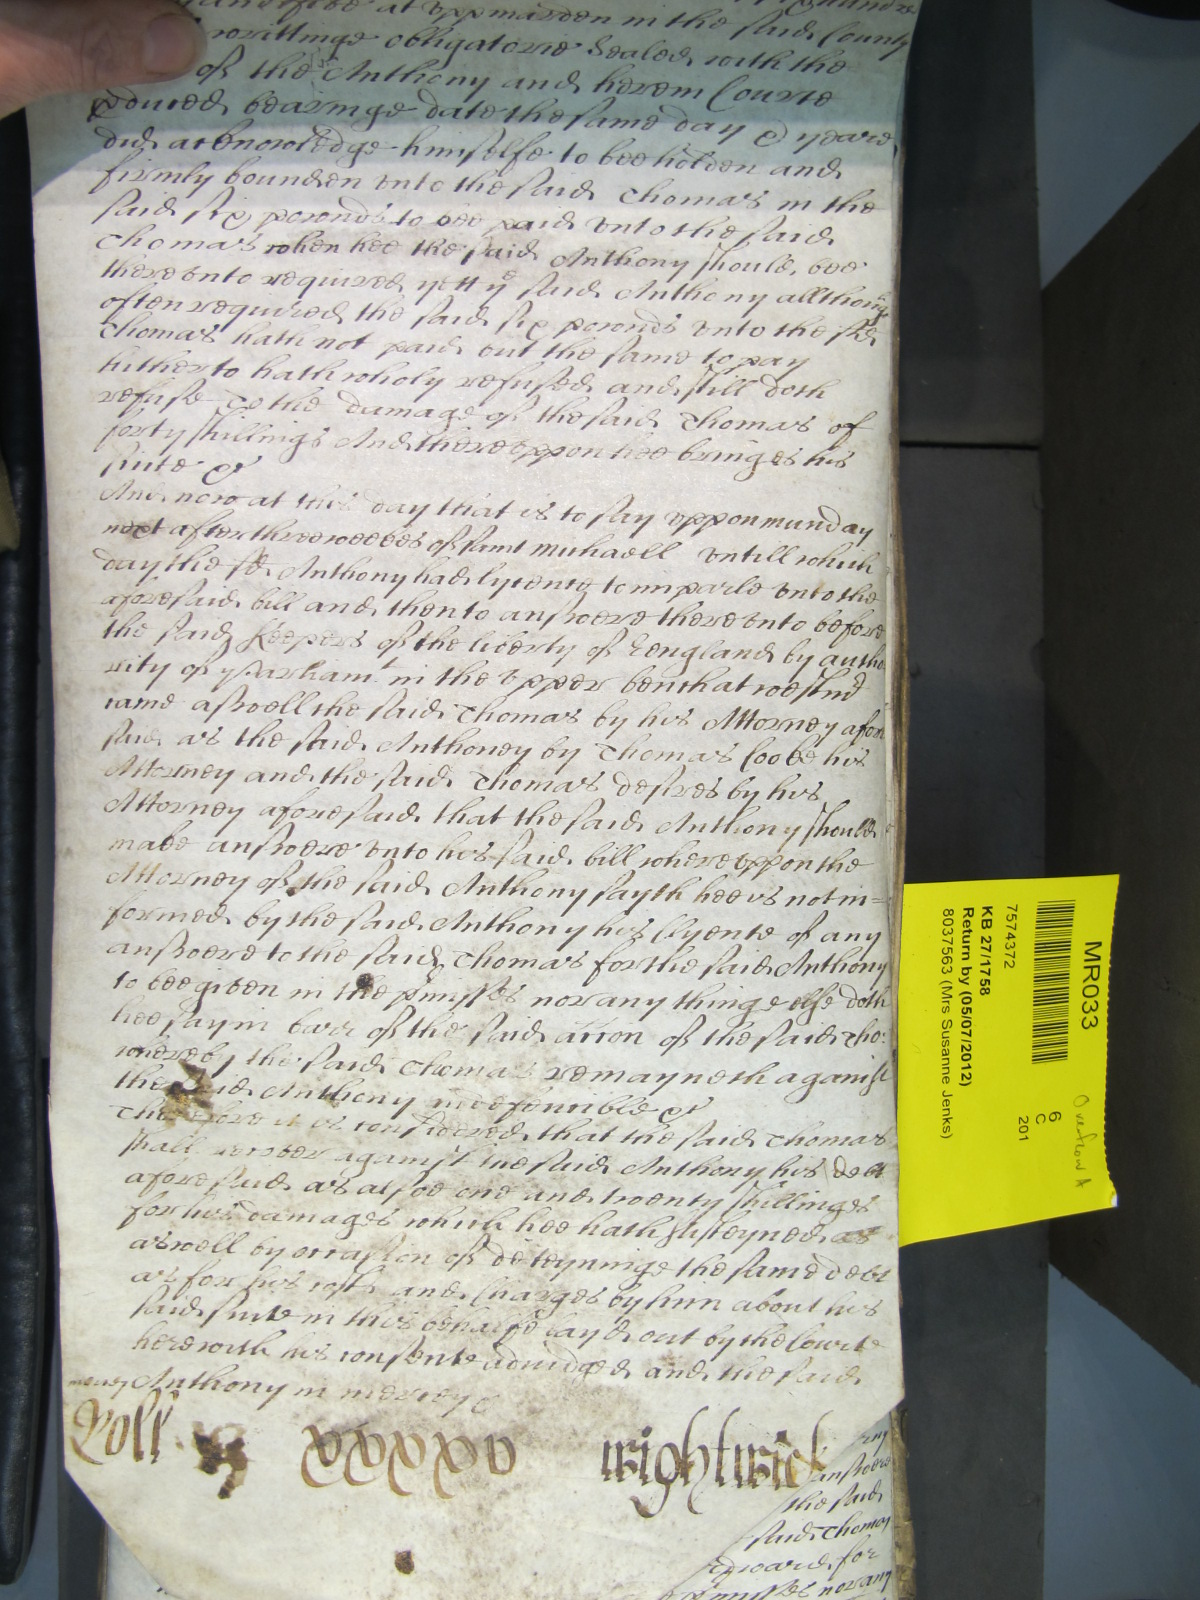 at Uppmarden in the said County
writtinge obligatorie Sealed with the
of the Anthony and herein Courte
pduced bearinge date the same day & yeare
did acknowledge himselfe to bee holden and
firmly bounden unto the said Thomas in the
said six pounds to bee paid unto the said
Thomas when hee the said Anthony should bee
there unto required yett ye said Anthony allthoug
often required the said six pounds unto the sd
Thomas hath not paid but the same to pay
hitherto hath wholy refused and still doth
refuse To the damage of the said Thomas of
forty shillings And thereuppon hee bringes his
suite &c
And now at this day that is to say uppon munday
next after three weekes of saint michaell untill which
day the sd Anthony had lycence to imparle unto the
aforesaid bill and then to answere there unto before
the said Keepers of the liberty of England by autho
rity of Parliamt in the upper bench at westmr
came aswell the said Thomas by his Attorney afore
said as the said Anthoney by Thomas Cooke his
Attorney and the said Thomas desires by his
Attorney aforesaid that the said Anthony should
make answere unto his said bill whereuppon the
Attorney of the said Anthony sayth hee is not in=
formed by the said Anthony his Clyente of any
answere to the said Thomas for the said Anthony
to bee given in the pmisses nor any thinge else doth
hee say in barr of the said accon of the said Tho:
whereby the said Thomas remayneth against
the said Anthony indefencible &c
Therefore it is considered that the said Thomas
shall recover against the said Anthony his debt
aforesaid as alsoe one and twenty shillinges
for his damages which hee hath susteyned as
aswell by occasion of deteyninge the same debt
as for his costs and Charges by him about his
said suite in this behalfe layd out by the Courte
herewith his consente adiudged and the said
mercy Anthony in mercy &c
Roll
any
answere
the said
said Thomas
Edward for
pmisses nor any
MR033
7574372
KB 27/1758
Return by (05/07/2012)
8037563 (Mrs Susanne Jenks)
6
C
201
Overflow A